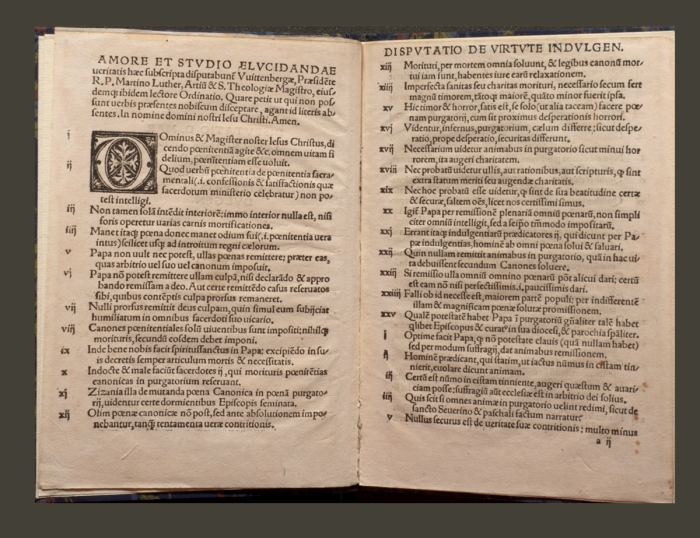 AMORE ET STVDIO ÆLVCIDANDAE
ueritatis hæc subscripta disputabunt̃ Vuittenbergæ, Præsidẽte
R. P. Martino Luther, Artiũ & S. Theologiæ Magistro, eius/
demq; ibidem lectore Ordinatio. Quare petit ut qui non pos/
sunt uerbis præsentes nobiscum disceptare, agant id literis ab/
sentes. In nomine domini nostri Iesu Christi. Amen.
i Ominus & Magister noster Iesus Christus, di
cendo pœnitentiã agite &c. omnem uitam fi
delium, pœnitentiam esse uoluit.
ij Quod uerbũ pœnitentia de pœnitentia sacra
mentali(.i. confessionis & satisfactionis quæ
sacerdotum ministerio celebratur) non po/
test intelligi.
iij Non tamen solã intẽdit interiorẽ: immo interior nulla est, nisi
foris operetur uarias carnis mortificationes.
iiij Manet itaq; pœna donec manet odium sui(.i. pœnitentia uera
intus) scilicet usq; ad introitum regni cælorum.
v Papa non uult nec potest, ullas pœnas remittere: præter eas,
quas arbitrio uel suo uel canonum imposuit.
vj Papa nõ potest remittere ullam culpã, nisi declarãdo & appro
bando remissam a deo. Aut certe remittẽdo casus reseruatos
sibi, quibus contẽptis culpa prorsus remaneret.
vij Nulli prorsus remittit deus culpam, quin simul eum subijciat
humiliatum in omnibus sacerdoti suo uicario.
viij Canones pœnitentiales solũ uiuentibus sunt impositi: nihilq;
morituris, secundũ eosdem debet imponi.
ix Inde bene nobis facit spiritussanctus in Papa: excipiẽdo in su/
is decretis semper articulum mortis & necessitatis.
x Indocte & male faciũt sacerdotes ij, qui morituris pœnitẽtias
canonicas in purgatorium reseruant.
xj Zizania illa de mutanda pœna Canonica in pœnã purgato/
rij, uidentur certe dormientibus Episcopis seminata.
xij Olim pœnæ canonicæ nõ post, sed ante absolutionem impo/
nebantur, tanq̃ tentamenta ueræ contritionis.
DISPVTATIO DE VIRTVTE INDVLGEN.
xiij Morituri, per mortem omnia soluunt, & legibus canonũ mor/
tui iam sunt, habentes iure earũ relaxationem.
xiiij Imperfecta sanitas seu charitas morituri, necessario secum fert
magnũ timorem, tãtoq; maiorẽ, quãto minor fuerit ipsa.
xv Hic timor & horror, satis est, se solo (ut alia taceam) facere pœ/
nam purgatorij, cum sit proximus desperationis horrori.
xvj Videntur, infernus, purgatorium, cælum differre: sicut despe/
ratio, prope desperatio, securitas differunt.
xvij Necessarium uidetur animabus in purgatorio sicut minui hor
rorem, ita augeri charitatem.
xviij Nec probatũ uidetur ullis, aut rationibus, aut scripturis, q̃ sint
extra statum meriti seu augendæ charitatis.
xix Nec hoc probatũ esse uidetur, q̃ sint de sua beatitudine certæ
& securæ, saltem oẽs, licet nos certissimi simus.
xx Igit̃ Papa per remissionẽ plenariã omniũ pœnarũ, non simpli
citer omniũ intelligit, sed a seipo tm̃modo impositarũ.
xxj Errant itaq; indulgentiarũ prædicatores ij, qui dicunt per Pa/
pæ indulgentias, hominẽ ab omni pœna solui & saluari.
xxij Quin nullam remittit animabus in purgatorio, quã in hac ui/
ta debuissent secundum Canones soluere.
xxiij Si remissio ulla omniũ omnino pœnarũ põt alicui dari: certũ
est eam nõ nisi perfectissimis, i. paucissimis dari.
xxiiij Falli ob id necesse est, maiorem partẽ populi: per indifferentẽ
illam & magnificam pœnæ solutæ promissionem.
xxv Qualẽ potestatẽ habet Papa ĩ purgatoriũ gñaliter talẽ habet
qlibet Episcopus & curat9 in sua diocesi, & parochia spãliter.
i Optime facit Papa, q̃ nõ potestate clauis (quã nullam habet)
sed per modum suffragij, dat animabus remissionem.
ij Hominẽ prædicant, qui statim, ut iactus nũmus in cistam tin/
nierit, euolare dicunt animam.
iij Certũ est nũmo in cistam tinniente, augeri quæstum & auari/
ciam posse: suffragiũ aũt ecclesiæ est in arbitrio dei solius.
iiij Quis scit si omnes animæ in purgatorio uelint redimi, sicut de
sancto Seuerino & paschali factum narratur.
v Nullus securus est de ueritate suæ contritionis: multo minus
a ij